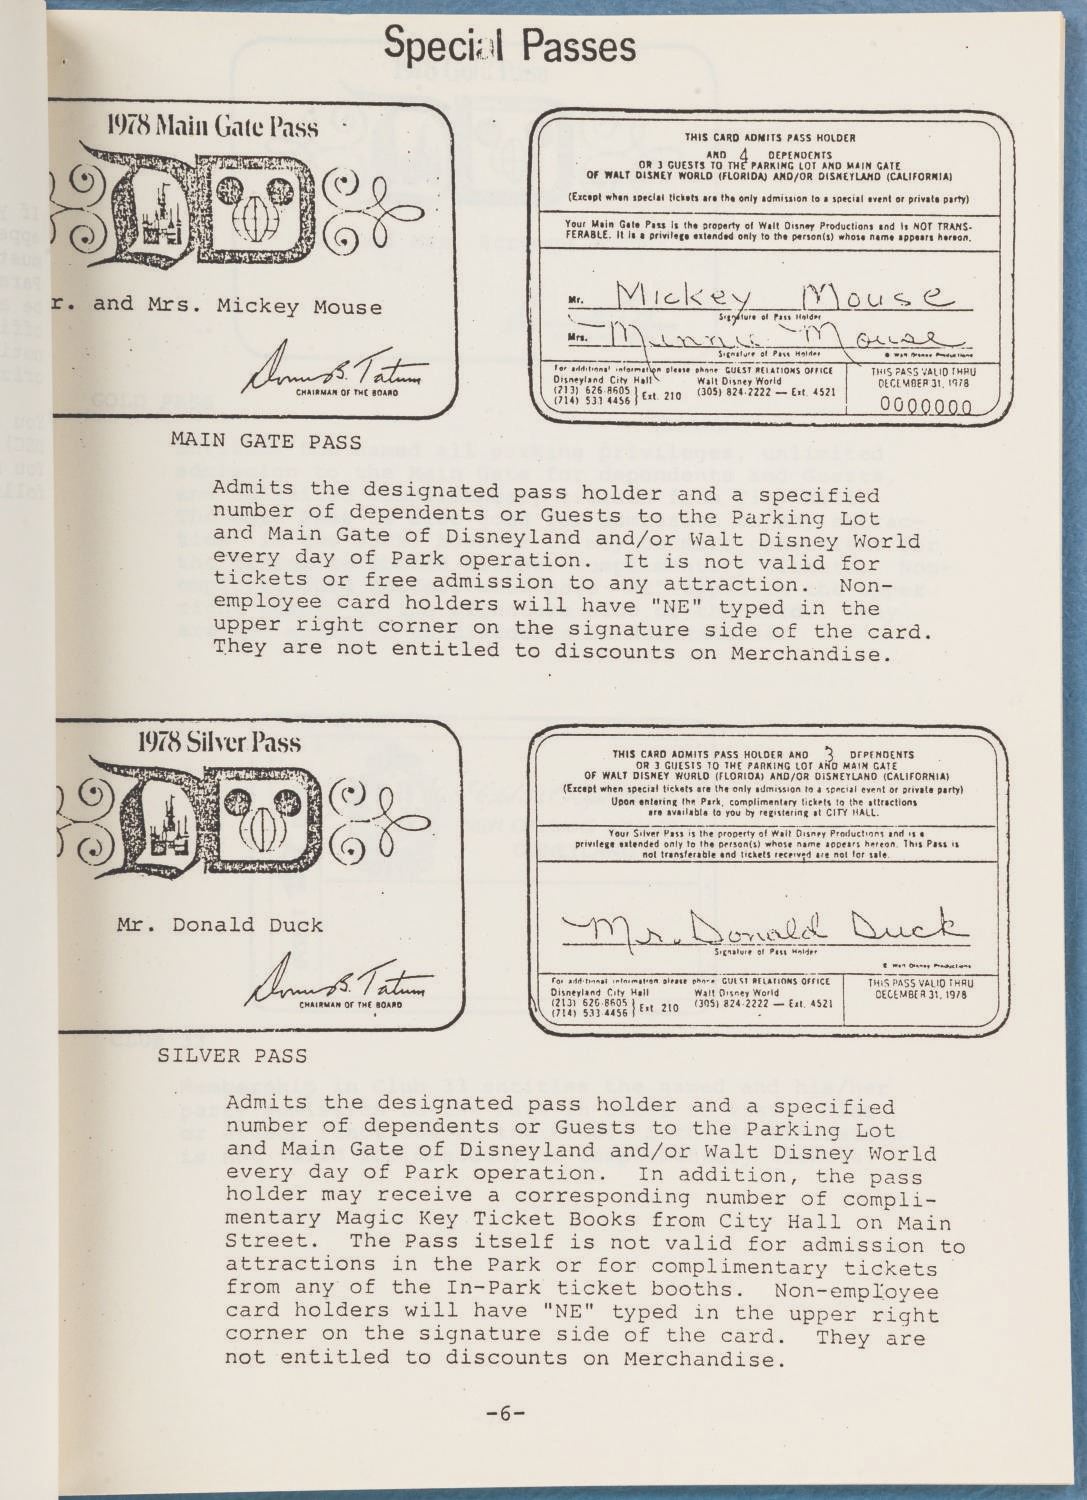 Special Passes
1978 Main Gate Pass
r. and Mrs. Mickey Mouse
Donn B. Tatum
CHAIRMAN OF THE BOARD
THIS CARD ADMITS PASS HOLDER
AND 4 DEPENDENTS
OR 3 GUESTS TO THE PARKING LOT AND MAIN GATE
OF WALT DISNEY WORLD (FLORIDA) AND/OR DISNEYLAND (CALIFORNIA)
(Except when special tickets are the only admission to a special event or private party)
Your Main Gate Pass is the property of Walt Disney Productions and is NOT TRANS-
FERABLE. It is a privilege extended only to the person(s) whose name appears hereon.
Mr. Mickey Mouse
Signature of Pass Holder
Mrs. Minnie Mouse
Signature of Pass Holder © Walt Disney Productions
For additional information please phone GUEST RELATIONS OFFICE
Disneyland City Hall Walt Disney World
(213) 626-8605 (714) 533-4456 } Ext. 210 (305) 824-2222 — Ext. 4521
THIS PASS VALID THRU
DECEMBER 31, 1978
0000000
MAIN GATE PASS
Admits the designated pass holder and a specified
number of dependents or Guests to the Parking Lot
and Main Gate of Disneyland and/or Walt Disney World
every day of Park operation. It is not valid for
tickets or free admission to any attraction. Non-
employee card holders will have "NE" typed in the
upper right corner on the signature side of the card.
They are not entitled to discounts on Merchandise.
1978 Silver Pass
Mr. Donald Duck
Donn B. Tatum
CHAIRMAN OF THE BOARD
THIS CARD ADMITS PASS HOLDER AND 3 DEPENDENTS
OR 3 GUESTS TO THE PARKING LOT AND MAIN GATE
OF WALT DISNEY WORLD (FLORIDA) AND/OR DISNEYLAND (CALIFORNIA)
(Except when special tickets are the only admission to a special event or private party)
Upon entering the Park, complimentary tickets to the attractions
are available to you by registering at CITY HALL.
Your Silver Pass is the property of Walt Disney Productions and is a
privilege extended only to the person(s) whose name appears hereon. This Pass is
not transferable and tickets received are not for sale.
Mr. Donald Duck
Signature of Pass Holder
© Walt Disney Productions
For additional information please phone GUEST RELATIONS OFFICE
Disneyland City Hall Walt Disney World
(213) 626-8605 (714) 533-4456 } Ext. 210 (305) 824-2222 — Ext. 4521
THIS PASS VALID THRU
DECEMBER 31, 1978
SILVER PASS
Admits the designated pass holder and a specified
number of dependents or Guests to the Parking Lot
and Main Gate of Disneyland and/or Walt Disney World
every day of Park operation. In addition, the pass
holder may receive a corresponding number of compli-
mentary Magic Key Ticket Books from City Hall on Main
Street. The Pass itself is not valid for admission to
attractions in the Park or for complimentary tickets
from any of the In-Park ticket booths. Non-employee
card holders will have "NE" typed in the upper right
corner on the signature side of the card. They are
not entitled to discounts on Merchandise.
-6-